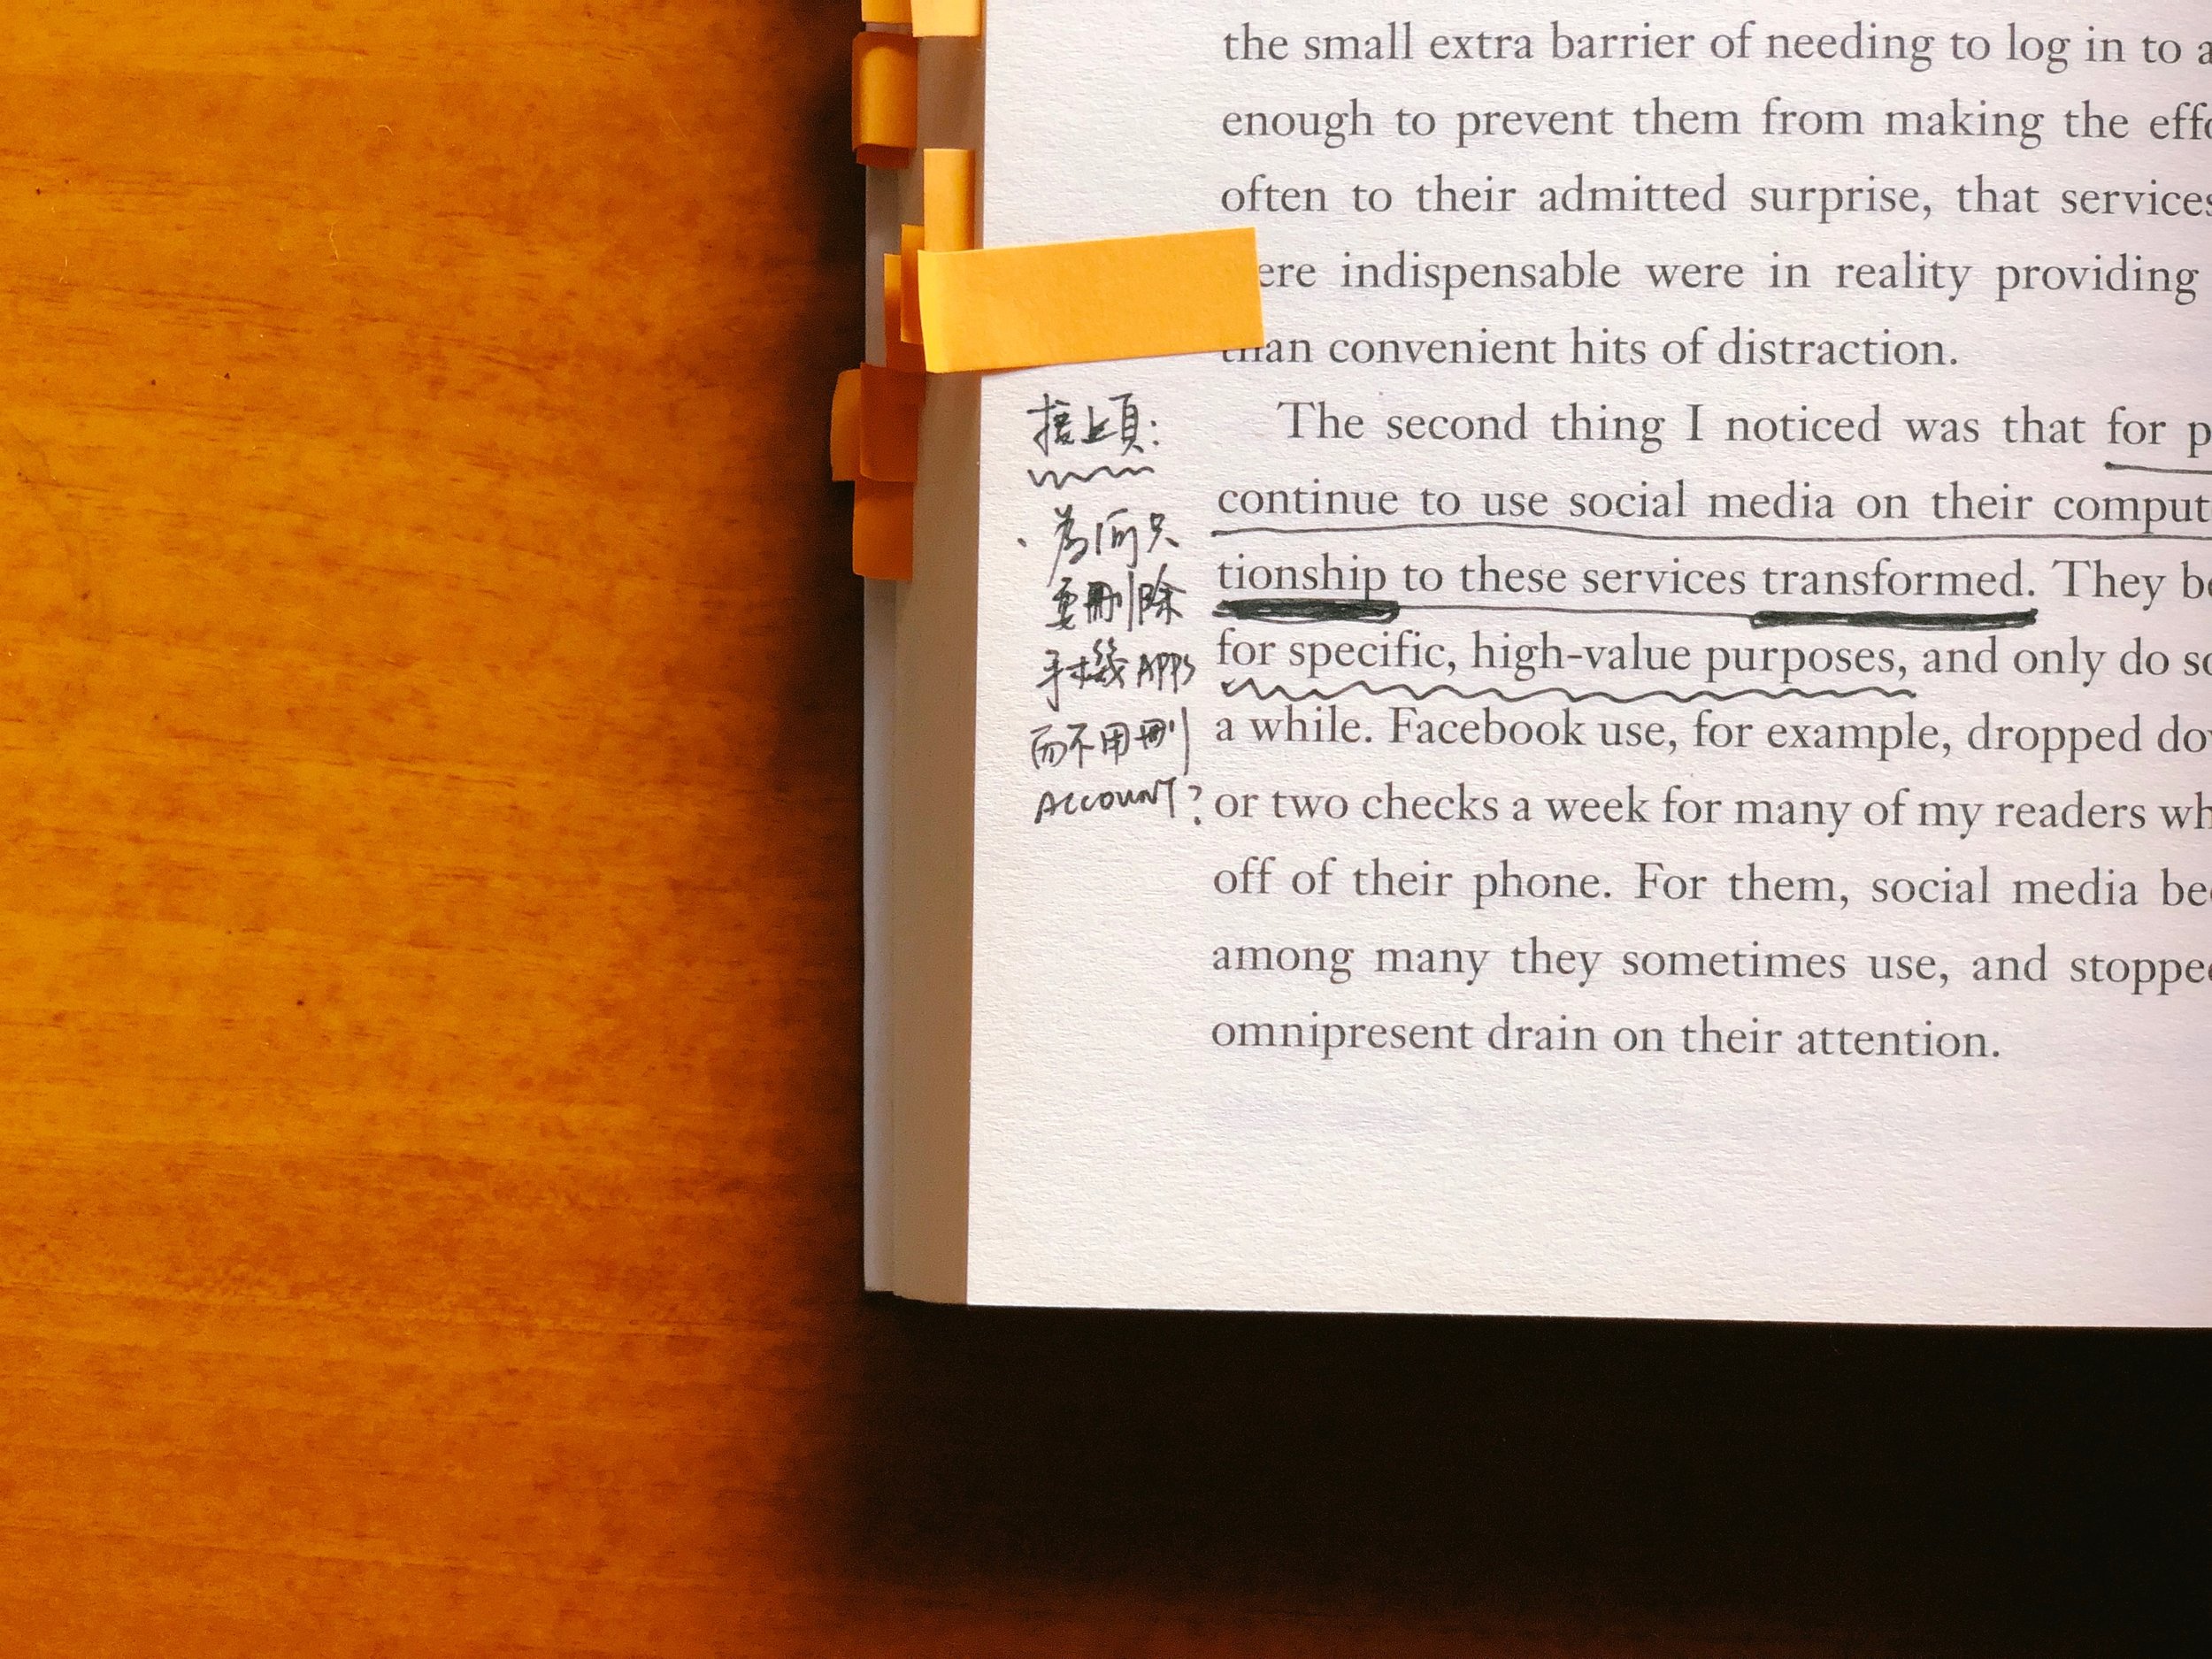 the small extra barrier of needing to log in to a
enough to prevent them from making the
often to their admitted surprise, that services
indispensable were in reality providing
than convenient hits of distraction.
接上頁:
The second thing I noticed was that for
continue to use social media on their
tionship to these services transformed. They
for specific, high-value purposes, and only do
a while. Facebook use, for example, dropped
or two checks a week for many of my readers
off of their phone. For them, social media
among many they sometimes use, and stopped
omnipresent drain on their attention.
・為何只
要刪除
手機APPS
而不用刪
ACCOUNT?